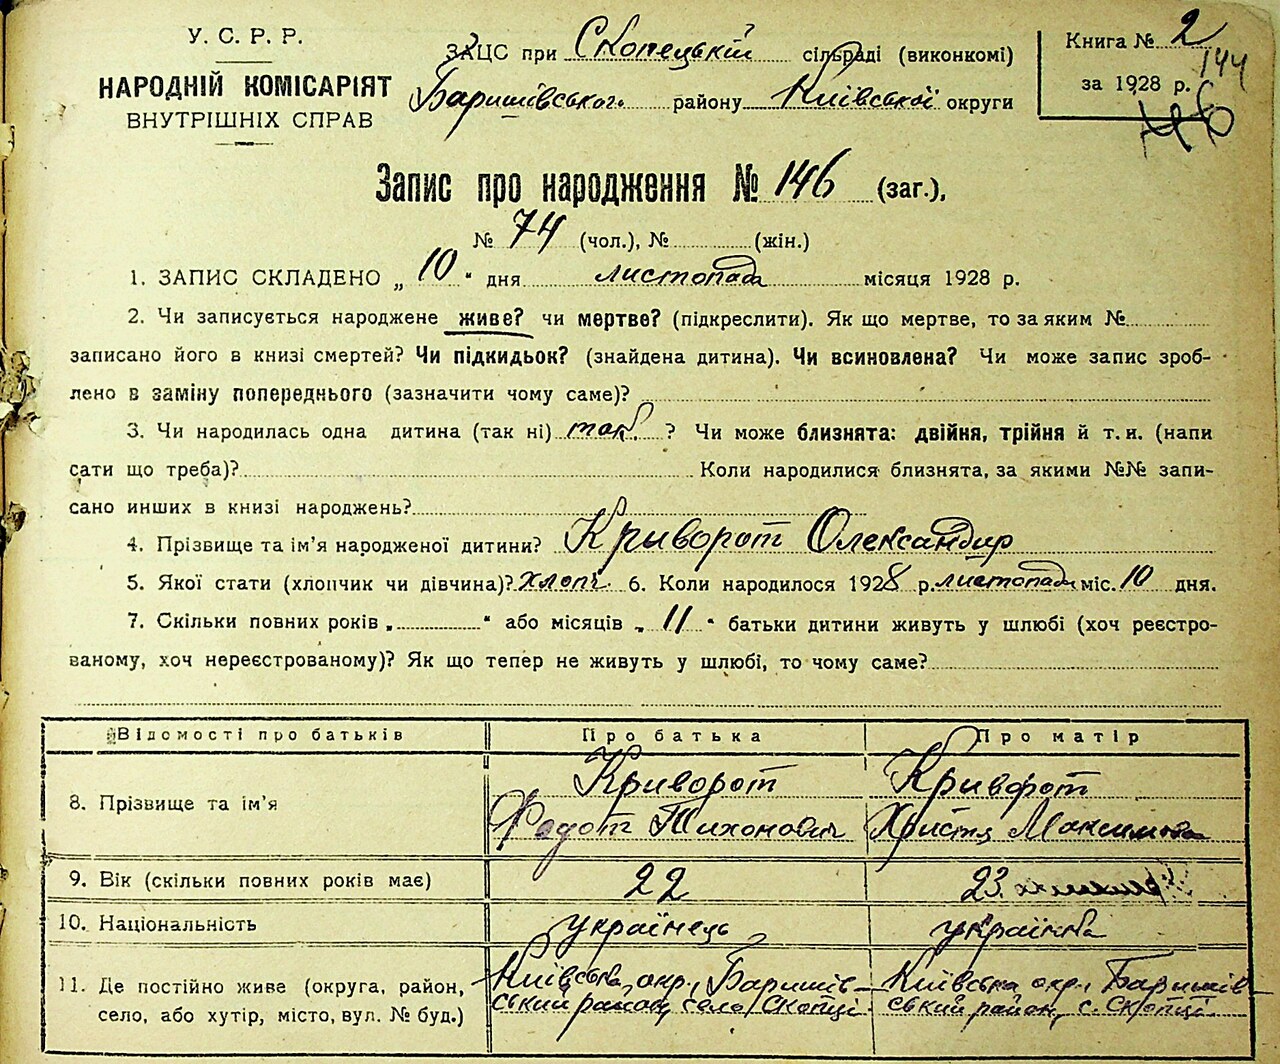 У. С. Р. Р.
НАРОДНІЙ КОМІСАРІЯТ
ВНУТРІШНІХ СПРАВ
ЗАЦС при Скопецькій сільраді (виконкомі)
Баришівського району Київської округи
Книга № 2
144
за 1928 р.
146
Запис про народження № 146 (заг.),
№ 74 (чол.), № (жін.)
1. ЗАПИС СКЛАДЕНО „ 10 “ дня листопада місяця 1928 р.
2. Чи записується народжене живе? чи мертве? (підкреслити). Як що мертве, то за яким №
записано його в книзі смертей? Чи підкидьок? (знайдена дитина). Чи всиновлена? Чи може запис зроб-
лено в заміну попереднього (зазначити чому саме)?
3. Чи народилась одна дитина (так ні) так ? Чи може близнята: двійня, трійня й т. и. (напи
сати що треба)? Коли народилися близнята, за якими №№ запи-
сано инших в книзі народжень?
4. Прізвище та ім’я народженої дитини? Криворот Олександир
5. Якої стати (хлопчик чи дівчина)? хлопч. 6. Коли народилося 1928 р. листопада міс. 10 дня.
7. Скільки повних років „ “ або місяців „ 11 “ батьки дитини живуть у шлюбі (хоч реєстро-
ваному, хоч нереєстрованому)? Як що тепер не живуть у шлюбі, то чому саме?
Відомості про батьків Про батька Про матір
8. Прізвище та ім’я Криворот Криворот
Федот Тихонович Христя Максимовна
9. Вік (скільки повних років має) 22 23
10. Національність українець українка
11. Де постійно живе (округа, район, Київська окр., Баришів- Київська окр., Баришів-
село, або хутір, місто, вул. № буд.) ський район, село Скопці ський район, с. Скопці.